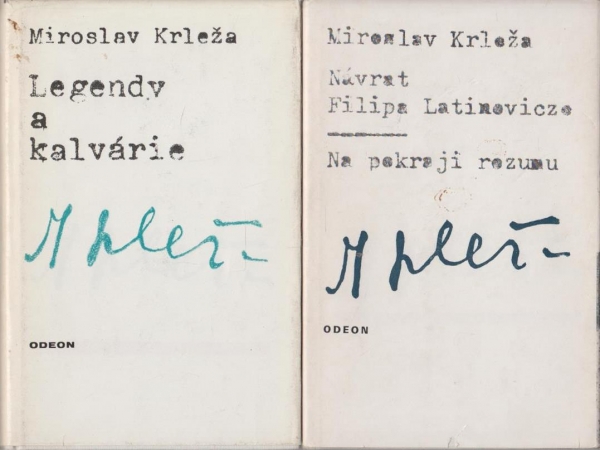 Miroslav Krleža
Legendy
a
kalvárie
M Krlež-
ODEON
Miroslav Krleža
Návrat
Filipa Latinovicze
Na pokraji rozumu
M Krlež-
ODEON